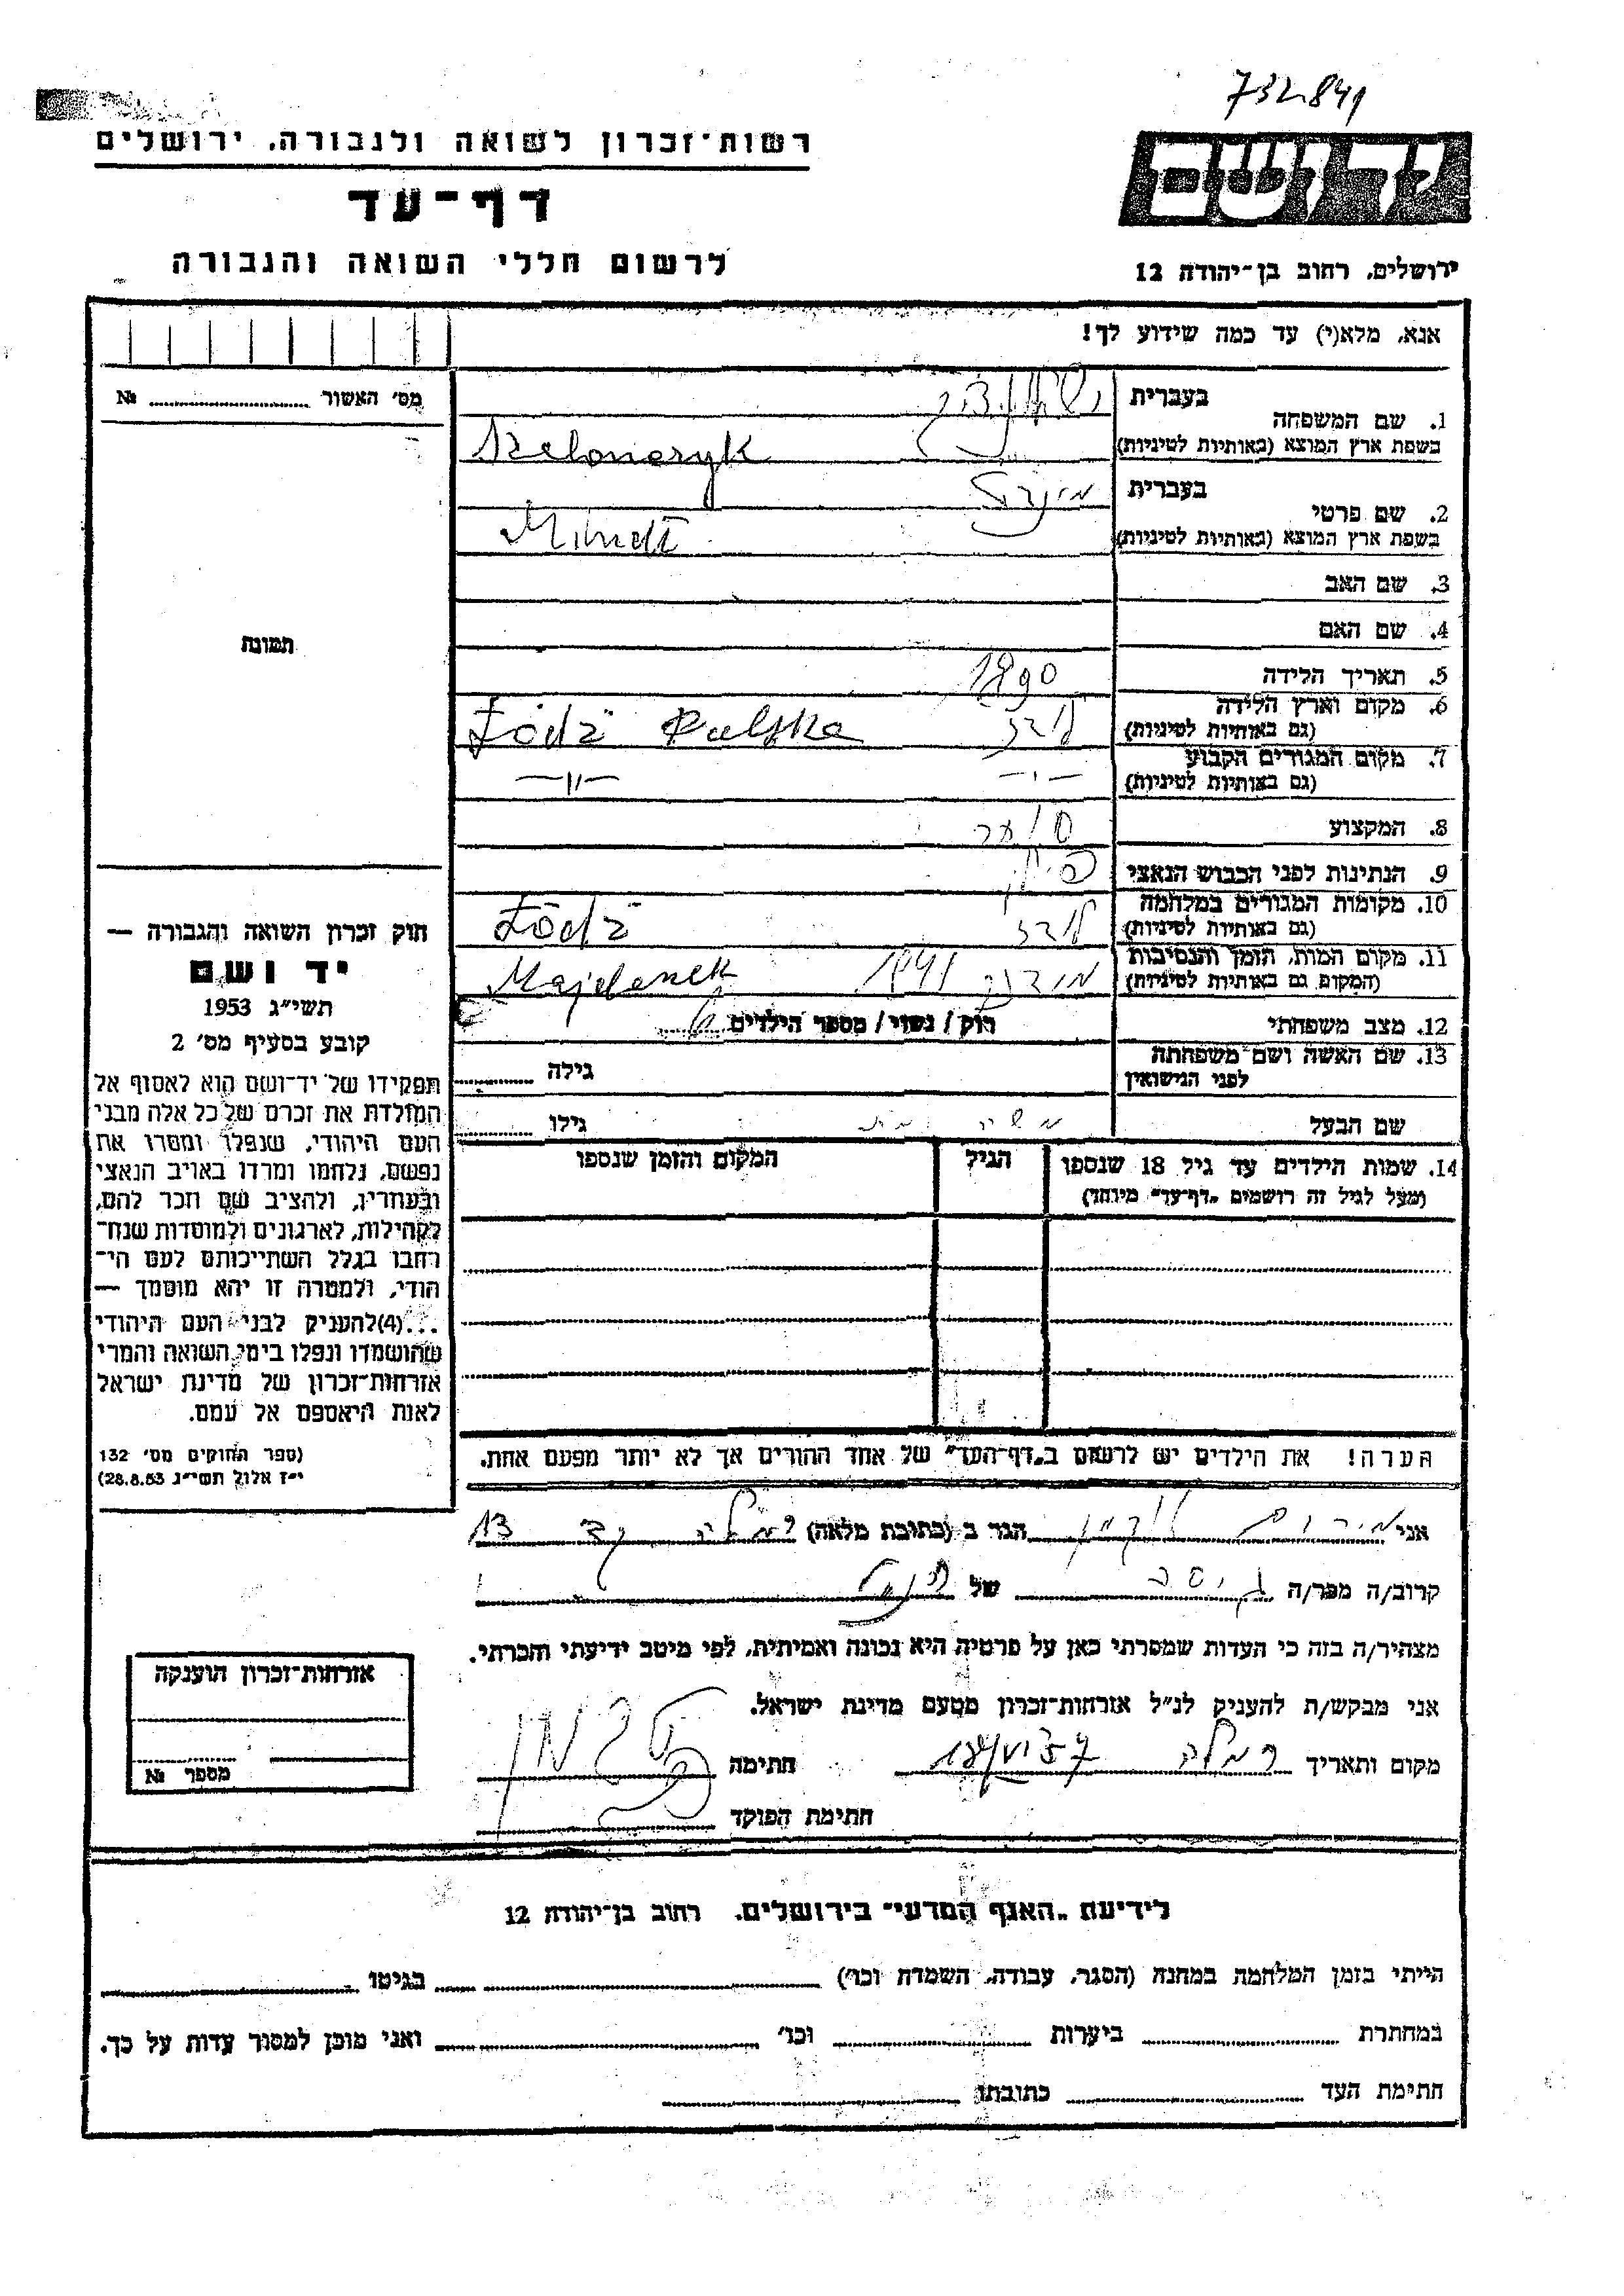 732841
רשות־זכרון לשואה ולגבורה, ירושלים
יד ושם
דף־עד
לרשום חללי השואה והגבורה
ירושלים, רחוב בן־יהודה 12
אנא, מלא(י) עד כמה שידוע לך!
מס' האשור № ....................
1. שם המשפחה
בעברית
בשפת ארץ המוצא (באותיות לטיניות)
2. שם פרטי
בעברית מינדל
בשפת ארץ המוצא (באותיות לטיניות)
3. שם האב
4. שם האם
תמונה
5. תאריך הלידה 1890
6. מקום וארץ הלידה
(גם באותיות לטיניות) לודז Łódź Polska
7. מקום המגורים הקבוע
(גם באותיות לטיניות) —"— —"—
8. המקצוע סוחר
9. הנתינות לפני הכבוש הנאצי
10. מקומות המגורים במלחמה
(גם באותיות לטיניות) לודז Łódź
11. מקום המות, הזמן והנסיבות
(המקום גם באותיות לטיניות) מידנק 1941 Majdanek
12. מצב משפחתי רוק / נשוי / מספר הילדים 6
13. שם האשה ושם משפחתה
לפני הנישואין גילה
שם הבעל גילו
14. שמות הילדים עד גיל 18 שנספו
(מעל לגיל זה רושמים „דף־עד" מיוחד)
הגיל
המקום והזמן שנספו
חוק זכרון השואה והגבורה —
יד ושם
תשי"ג 1953
קובע בסעיף מס' 2
תפקידו של יד־ושם הוא לאסוף אל
המולדת את זכרם של כל אלה מבני
העם היהודי, שנפלו ומסרו את
נפשם, נלחמו ומרדו באויב הנאצי
ובעוזריו, ולהציב שם וזכר להם,
לקהילות, לארגונים ולמוסדות שנח־
רבו בגלל השתייכותם לעם הי־
הודי, ולמטרה זו יהא מוסמך —
...(4)להעניק לבני העם היהודי
שהושמדו ונפלו בימי השואה והמרי
אזרחות־זכרון של מדינת ישראל
לאות היאספם אל עמם.
(ספר החוקים מס' 132
י"ז אלול תשי"ג 28.8.53)
הערה! את הילדים יש לרשום ב„דף־העד" של אחד ההורים אך לא יותר מפעם אחת.
אני הגר ב (כתובת מלאה) רמלה 13
קרוב/ה מכר/ה גיסה של
מצהיר/ה בזה כי העדות שמסרתי כאן על פרטיה היא נכונה ואמיתית, לפי מיטב ידיעתי והכרתי.
אני מבקש/ת להעניק לנ"ל אזרחות־זכרון מטעם מדינת ישראל.
מקום ותאריך רמלה חתימה
חתימת הפוקד
אזרחות־זכרון הוענקה
מספר №
לידיעת „האגף המדעי" בירושלים, רחוב בן־יהודה 12
הייתי בזמן המלחמה במחנה (הסגר, עבודה, השמדה וכו') בגיטו
במחתרת ביערות וכו' ואני מוכן למסור עדות על כך.
חתימת העד כתובתו